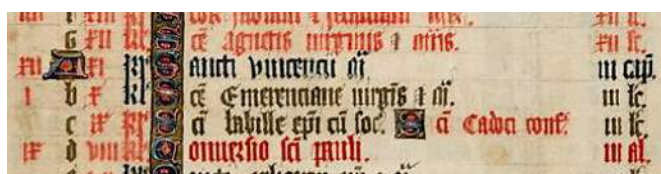 G xii kl. Scē agnetis uirginis & m̄ris. xii lc.
xii A xi kl Sancti vincencii m̄. iii cap.
i b x kl Scē Emerenciane uirgīs & m̄. iii lc.
c ix kl Sci babille epī cū soc. Sci Cadoci conf. iii lc.
ix d viii kl Conuersio sci pauli. iii al.